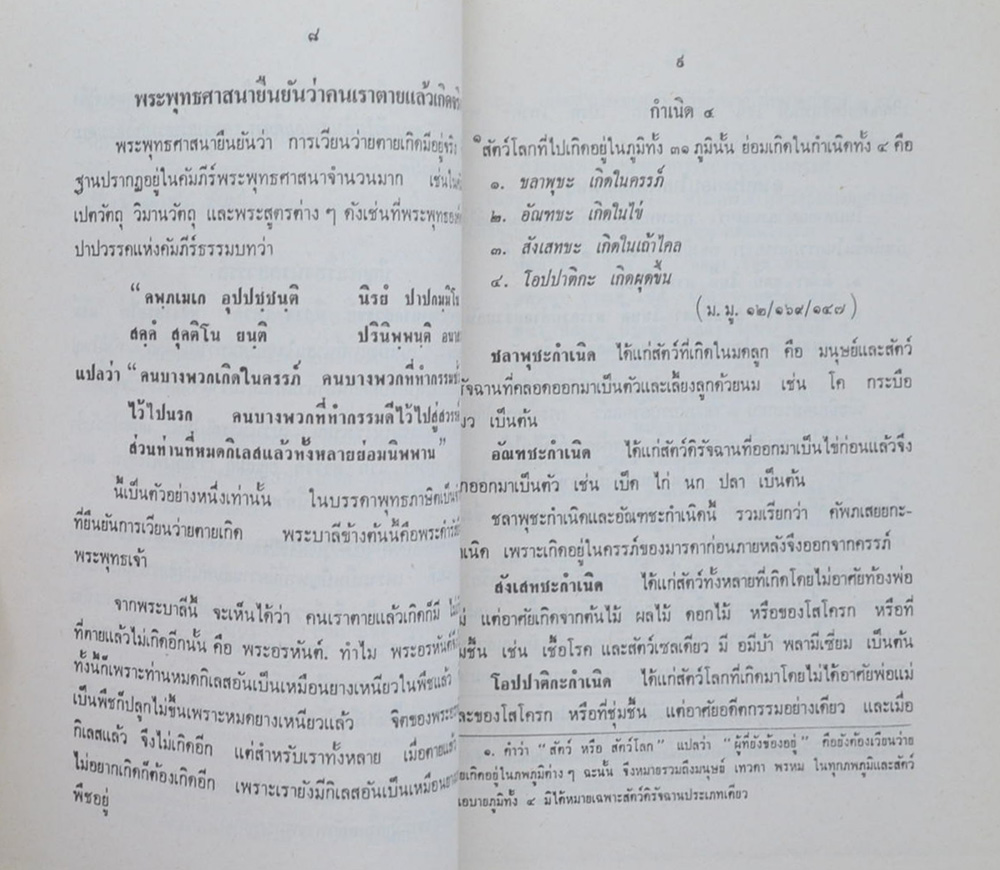 ๘
พระพุทธศาสนายืนยันว่าคนเราตายแล้วเกิด
พระพุทธศาสนายืนยันว่า การเวียนว่ายตายเกิดมีอยู่จริง
ฐานปรากฏอยู่ในคัมภีร์พระพุทธศาสนาจำนวนมาก เช่น
เปตวัตถุ วิมานวัตถุ และพระสูตรต่าง ๆ ดังเช่นที่พระพุทธองค์
ปาปวรรคแห่งคัมภีร์ธรรมบทว่า
“คพฺภเมเก อุปฺปชฺชนฺติ นิรยํ ปาปกมฺมิโน
สคฺคํ สุคติโน ยนฺติ ปรินิพฺพนฺติ
แปลว่า “คนบางพวกเกิดในครรภ์ คนบางพวกที่ทำกรรมชั่ว
ไว้ไปนรก คนบางพวกที่ทำกรรมดีไว้ไปสู่สวรรค์
ส่วนท่านที่หมดกิเลสแล้วทั้งหลายย่อมนิพพาน”
นี้เป็นตัวอย่างหนึ่งเท่านั้น ในบรรดาพุทธภาษิต
ที่ยืนยันการเวียนว่ายตายเกิด พระบาลีข้างต้นนี้คือพระดำรัส
พระพุทธเจ้า
จากพระบาลีนี้ จะเห็นได้ว่า คนเราตายแล้วเกิดก็มี
ที่ตายแล้วไม่เกิดอีกนั้น คือ พระอรหันต์. ทำไม พระอรหันต์
ทั้งนี้ก็เพราะท่านหมดกิเลสอันเป็นเหมือนยางเหนียวในพืชแล้ว
เป็นพืชก็ปลูกไม่ขึ้นเพราะหมดยางเหนียวแล้ว จิตของพระ
กิเลสแล้ว จึงไม่เกิดอีก แต่สำหรับเราทั้งหลาย เมื่อตายแล้ว
ไม่อยากเกิดก็ต้องเกิดอีก เพราะเรายังมีกิเลสอันเป็นเหมือน
พืชอยู่
๙
กำเนิด ๔
๑สัตว์โลกที่ไปเกิดอยู่ในภูมิทั้ง ๓๑ ภูมินั้น ย่อมเกิดในกำเนิดทั้ง ๔ คือ
๑. ชลาพุชะ เกิดในครรภ์
๒. อัณฑชะ เกิดในไข่
๓. สังเสทชะ เกิดในเถ้าไคล
๔. โอปปาติกะ เกิดผุดขึ้น
(ม. มู. ๑๒/๑๖๙/๑๔๗)
ชลาพุชะกำเนิด ได้แก่สัตว์ที่เกิดในมดลูก คือ มนุษย์และสัตว์
รัจฉานที่คลอดออกมาเป็นตัวและเลี้ยงลูกด้วยนม เช่น โค กระบือ
เป็นต้น
อัณฑชะกำเนิด ได้แก่สัตว์ดิรัจฉานที่ออกมาเป็นไข่ก่อนแล้วจึง
กออกมาเป็นตัว เช่น เป็ด ไก่ นก ปลา เป็นต้น
ชลาพุชะกำเนิดและอัณฑชะกำเนิดนี้ รวมเรียกว่า คัพภเสยยกะ-
เนิด เพราะเกิดอยู่ในครรภ์ของมารดาก่อนภายหลังจึงออกจากครรภ์
สังเสทชะกำเนิด ได้แก่สัตว์ทั้งหลายที่เกิดโดยไม่อาศัยท้องพ่อ
แต่อาศัยเกิดจากต้นไม้ ผลไม้ ดอกไม้ หรือของโสโครก หรือที่
มชื้น เช่น เชื้อโรค และสัตว์เซลเดียว มี อมีบ้า พลามีเซี่ยม เป็นต้น
โอปปาติกะกำเนิด ได้แก่สัตว์โลกที่เกิดมาโดยไม่ได้อาศัยพ่อแม่
ละของโสโครก หรือที่ชุ่มชื้น แต่อาศัยอดีตกรรมอย่างเดียว และเมื่อ
๑. คำว่า “สัตว์ หรือ สัตว์โลก” แปลว่า “ผู้ที่ยังข้องอยู่” คือยังต้องเวียนว่าย
ยเกิดอยู่ในภพภูมิต่าง ๆ ฉะนั้น จึงหมายรวมถึงมนุษย์ เทวดา พรหม ในทุกภพภูมิและสัตว์
อบายภูมิทั้ง ๔ มิได้หมายเฉพาะสัตว์ดิรัจฉานประเภทเดียว